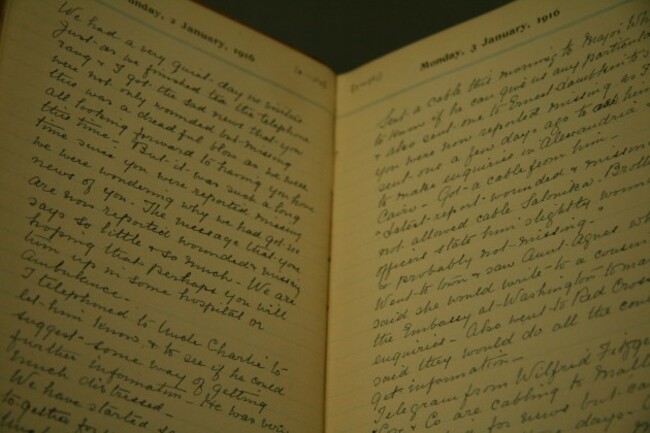 nday, 2 January, 1916
We had a very quiet day no visitors
Just as we finished tea the telephone
rang & I got the sad news that you
were not only wounded but missing
this was a dreadful blow as we were
all looking forward to having you home
this time - But it was such a long
time since you were reported missing
we were wondering why we had got no
news of you. The message that you
are now reported wounded & missing
says so little & so much - We are
hoping that perhaps you will
turn up in some hospital or
Ambulance -
I telephoned to Uncle Charlie to
let him know & to see if he could
suggest some way of getting
further information - He was very
much distressed -
We have started
together for
Monday, 3 January, 1916
Sent a cable this morning to Major
to know if he can give us any particular
& also sent one to Ernest
you were now reported missing as I
sent one a few days ago to ask him
to make enquiries in Alexandria &
Cairo - Got a cable from him -
"Latest report wounded & missing
not allowed cable Salonika. Brother
officers state him slightly wound
& probably not missing."
Went to town & saw Aunt Agnes wh
said she would write to a cousin
the Embassy at Washington to ma
enquiries - Also went to Red Cros
said they would do all the con
get information -
Telegram from Wilfred Fitzge
Cox & Co are cabling to Malt
for news but ca
days -